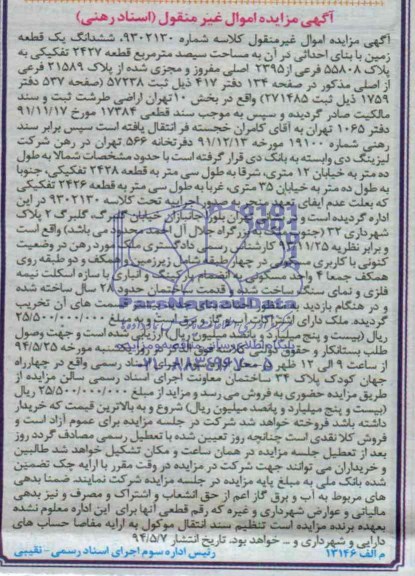 آگهی مزایده اموال غیر منقول (اسناد رهنی)
آگهی مزایده اموال غیرمنقول کلاسه شماره ۹۳۰۲۱۳۰، ششدانگ یک قطعه
زمین با بنای احداثی در آن به مساحت سیصد مترمربع قطعه ۲۴۲۷ تفکیکی به
پلاک ۵۵۸۰۸ فرعی از ۲۳۹۵ اصلی مفروز و مجزی شده از پلاک ۲۱۵۸۹ فرعی
از اصلی مذکور در صفحه ۱۳۴ دفتر ۴۱۷ ذیل ثبت ۵۷۲۳۸ (صفحه ۵۳۷ دفتر
۱۷۵۹ ذیل ثبت ۲۷۱۴۸۵) واقع در بخش ۱۰ تهران اراضی طرشت ثبت و سند
مالکیت صادر گردیده و سپس به موجب سند قطعی ۱۷۳۸۴ مورخ ۹۱/۱۱/۱۷
دفتر ۱۰۶۵ تهران به آقای کامران خجسته فر انتقال یافته است سپس برابر سند
رهنی شماره ۱۹۱۰۰ مورخه ۹۱/۱۲/۱۳ دفترخانه ۵۶۶ تهران در رهن شرکت
لیزینگ دی وابسته به بانک دی قرار گرفته است با حدود مشخصات شمالا به طول
ده متر به خیابان ۱۲ متری، شرقا به طول سی متر به قطعه ۲۴۲۸ تفکیکی، جنوبا
به طول ده متر به خیابان ۳۵ متری، غربا به طول سی متر به قطعه ۲۴۲۶ تفکیکی
که بعلت عدم ایفای تعهد اجرائیه تحت کلاسه ۹۳۰۲۱۳۰ در این
اداره گردیده است و تهران بلوار جانبازان خیابان گلبرگ ۲ پلاک
شهرداری ۳۲ (جنوب بزرگراه جلال آل احمد محدود می باشد) واقع است
و برابر نظریه کارشناس رسمی دادگستری ملک مورد رهن در وضعیت
کنونی با کاربری مسکونی در چهار طبقه شامل زیرزمین و همکف و دو طبقه روی
همکف جمعا ۴ واحد مسکونی به انضمام پارکینگ و انباری با سازه اسکلت نیمه
فلزی و نمای سنگ ساخته شده و قدمت ساختمان حدود ۲۸ سال ساخته شده
و در هنگام بازدید قسمت های آن تخریب
گردیده. ملک دارای اشتراکات آب و برق و گاز می باشد و به مبلغ ۲۵/۵۰۰/۰۰۰/۰۰۰
ریال (بیست و پنج میلیارد و پانصد میلیون ریال) ارزیابی شده است و جهت وصول
طلب بستانکار و حقوق دولتی کلاسه فوق الذکر در روز یکشنبه مورخه ۹۴/۵/۲۵
از ساعت ۹ الی ۱۲ ظهر در محل اداره سوم اجرای اسناد رسمی واقع در چهارراه
جهان کودک پلاک ۳۴ ساختمان معاونت اجرای اسناد رسمی سالن مزایده از
طریق مزایده حضوری به فروش می رسد و مزاید از مبلغ ۲۵/۵۰۰/۰۰۰/۰۰۰ ریال
(بیست و پنج میلیارد و پانصد میلیون ریال) شروع و به بالاترین قیمت که خریدار
داشته باشد فروخته خواهد شد شرکت در جلسه مزایده برای عموم آزاد است و
فروش کلا نقدی است چنانچه روز تعیین شده با تعطیل رسمی مصادف گردد روز
بعد از تعطیل جلسه مزایده در همان ساعت و مکان تشکیل خواهد شد طالبین
و خریداران می توانند جهت شرکت در مزایده در وقت مقرر با ارایه چک تضمین
شده بانک ملی به مبلغ پایه مزایده در جلسه مزایده شرکت نمایند. ضمنا بدهی
های مربوط به آب و برق گاز اعم از حق انشعاب و اشتراک و مصرف و نیز بدهی
مالیاتی و عوارض شهرداری و غیره که رقم قطعی آنها برای این اداره معلوم نشده
بعهده برنده مزایده است تنظیم سند انتقال موکول به ارایه مفاصا حساب های
دارایی و شهرداری و ... خواهد بود. تاریخ انتشار ۹۴/۵/۷
م الف ۱۳۱۴۶ رئیس اداره سوم اجرای اسناد رسمی - نقیبی